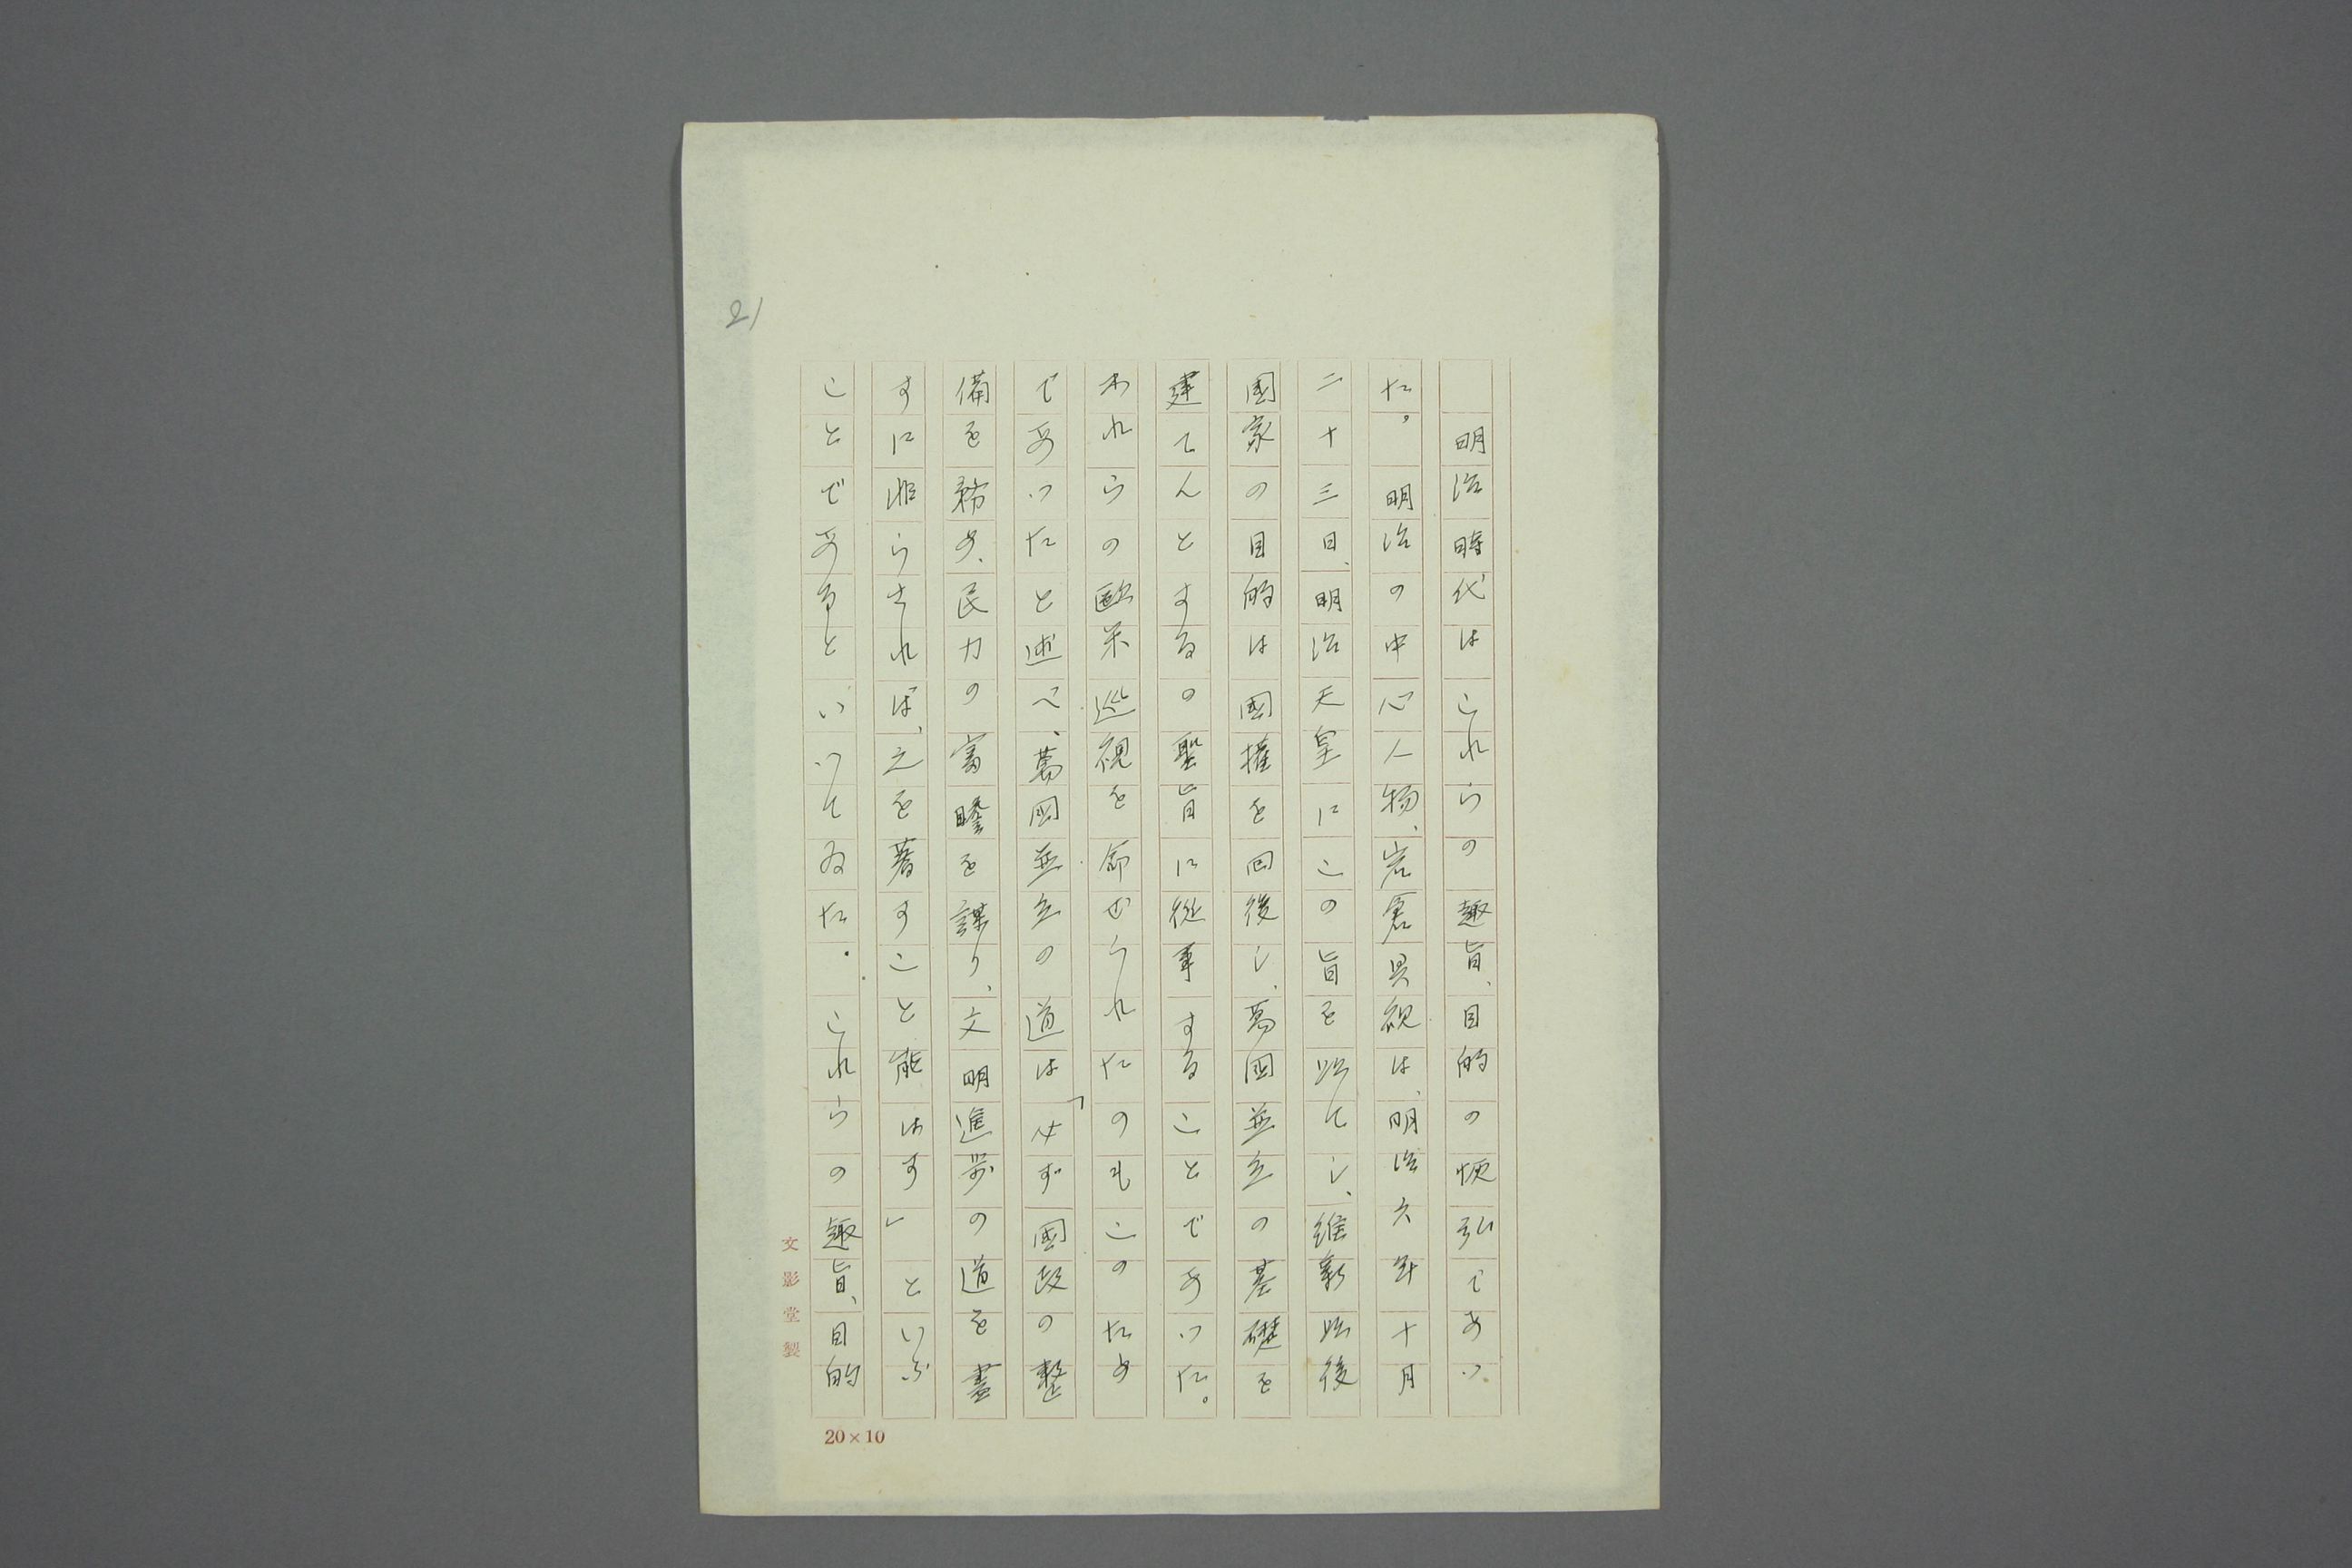 21
明治時代はこれらの趣旨、目的の恢弘であつ
た。明治の中心人物、岩倉具視は、明治六年十月
二十三日、明治天皇にこの旨を以てし、維新始後
国家の目的は國権を回後し、萬国並立の基礎を
建てんとするの聖旨に從事することであつた。
われらの歐米巡視を命ぜられたのもこのため
であつたと述べ、萬国並立の道は「必ず國政の整
備を務め、民力の富瞻を謀り、文明進歩の道を盡
すに非らされば、之を著すこと能はす」といふ
ことであるといつてゐた。これらの趣旨、目的
文影堂製
20×10